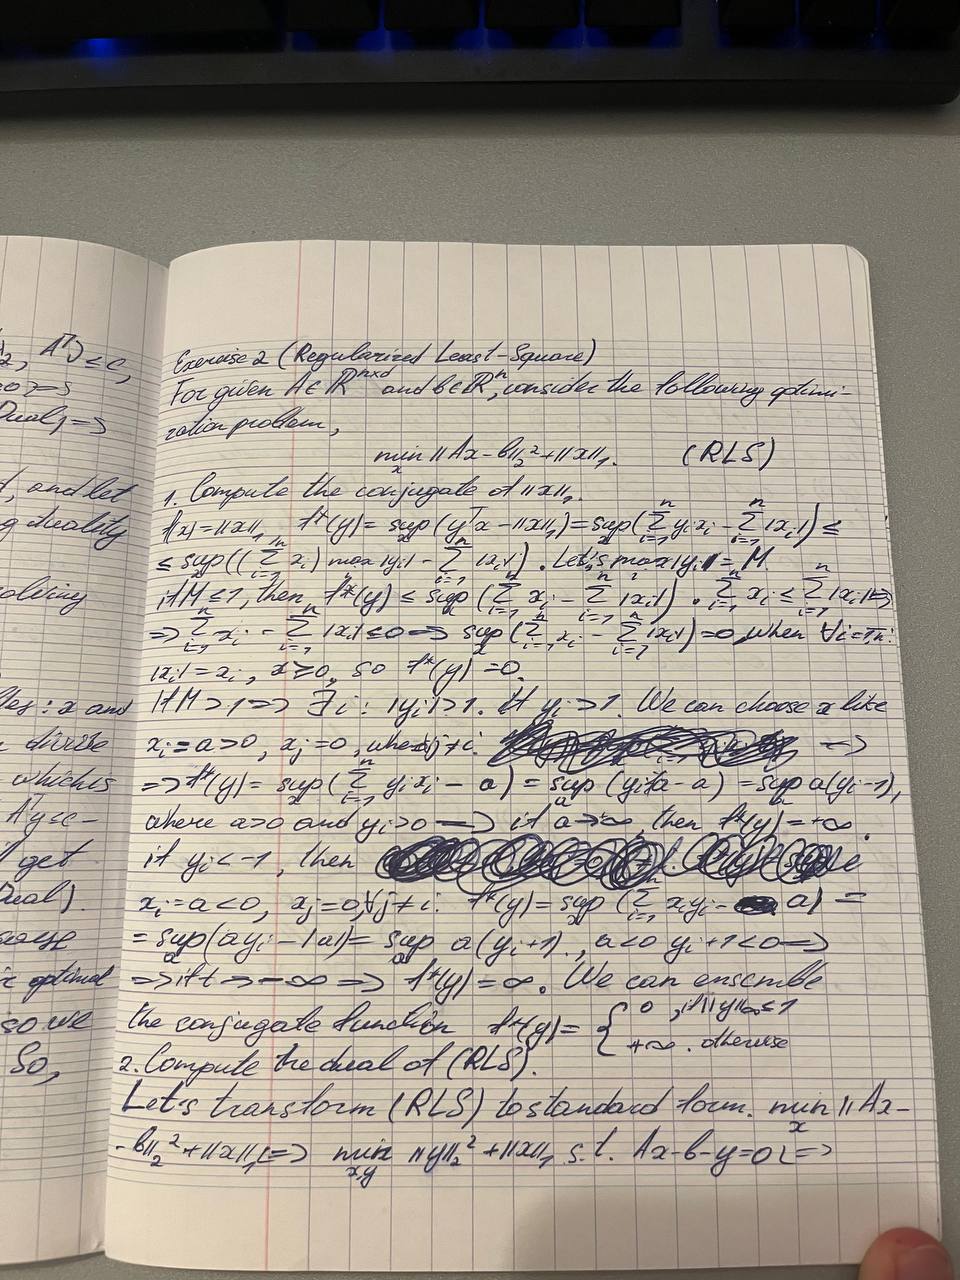 A^T λ ≤ c,
Dual) =>
d, and let
g duality
solving
les: x and
n divide
which is
A^T y ≤ c -
get
Dual).
optimal
so we
So,
Exercise 2 (Regularized Least-Square)
For given A∈ℝ^{n×d} and b∈ℝ^n, consider the following optimi-
zation problem,
min_x ||Ax-b||_2^2 + ||x||_1. (RLS)
1. Compute the conjugate of ||x||_1.
f(x)=||x||_1 f*(y)= sup_x (y^T x - ||x||_1) = sup_x (∑_{i=1}^n y_i x_i - ∑_{i=1}^n |x_i|) ≤
≤ sup_x ((∑_{i=1}^n x_i) max_i |y_i| - ∑_{i=1}^n |x_i|). Let's max_i |y_i| = M.
if M ≤ 1, then f*(y) ≤ sup_x (∑_{i=1}^n x_i - ∑_{i=1}^n |x_i|). ∑_{i=1}^n x_i ≤ ∑_{i=1}^n |x_i| =>
=> ∑_{i=1}^n x_i - ∑_{i=1}^n |x_i| ≤ 0 => sup_x (∑_{i=1}^n x_i - ∑_{i=1}^n |x_i|) = 0, when ∀i=1,n:
|x_i| = x_i, x ≥ 0, so f*(y) = 0.
If M > 1 => ∃ i : |y_i| > 1. If y_i > 1. We can choose x like
x_i = a > 0, x_j = 0, when ∀j≠i. =>
=> f*(y) = sup_x (∑_{i=1}^n y_i x_i - a) = sup_a (y_i a - a) = sup_a a(y_i - 1),
where a>0 and y_i>0 => if a→∞, then f*(y) = +∞.
if y_i < -1, then
x_i = a < 0, x_j = 0, ∀j≠i: f*(y) = sup_x (∑_{i=1}^n x_i y_i - a) =
= sup_a (a y_i - |a|) = sup_a a(y_i + 1), a<0 y_i + 1 < 0 =>
=> if t → -∞ => f*(y) = ∞. We can ensemble
the conjugate function f*(y) = { 0, if ||y||_∞ ≤ 1
+∞. otherwise
2. Compute the dual of (RLS).
Let's transform (RLS) to standard form. min_x ||Ax-
-b||_2^2 + ||x||_1 <=> min_{x,y} ||y||_2^2 + ||x||_1 s.t. Ax-b-y=0 <=>